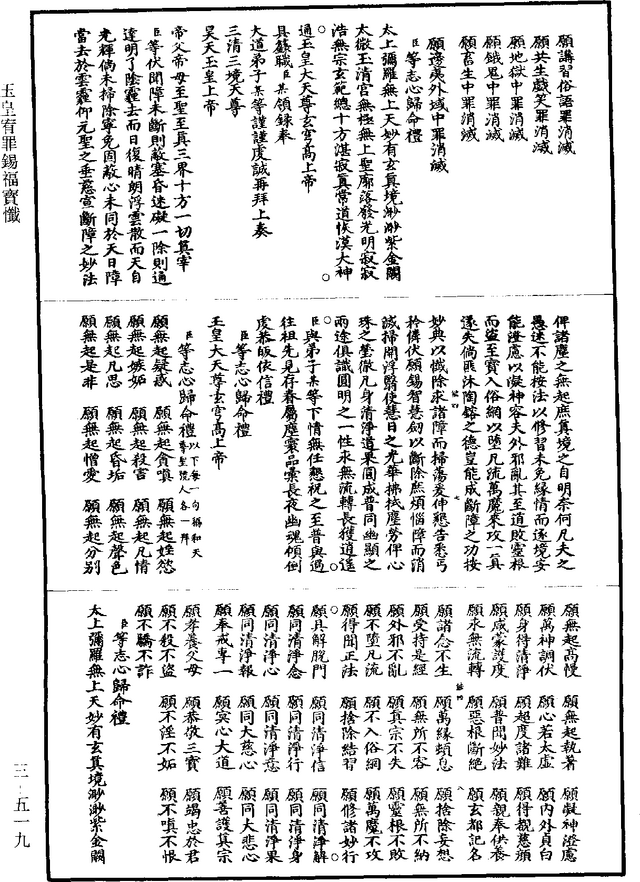 玉皇宥罪錫福寶懺
願講習俗語罪消滅
願共生戲笑罪消滅
願地獄中罪消滅
願餓鬼中罪消滅
願畜生中罪消滅
願邊夷外域中罪消滅
臣等志心歸命禮
太上彌羅無上天妙有玄真境渺渺紫金闕
太微玉清宮無極無上聖廓落發光明寂寂
浩無宗玄範總十方湛寂真常道恢漠大神
通玉皇大天尊玄穹高上帝
具籙職臣某領錄奉
大道弟子某等謹謹虔誠再拜上奏
三清三境天尊
昊天玉皇上帝
帝父帝母至聖至真三界十方一切真宰
臣等伏聞障未斷則蔽塞昏迷礙一除則通
達明了陰霾去而日復晴朗浮雲散而天自
光輝倘未掃除寧免固蔽心未同於天日障
當去於雲霾仰元聖之垂慈宣斷障之妙法
俾諸塵之無起庶真境之自明奈何凡夫之
愚迷不能按法以修習未免緣情而逐境安
能澄慮以凝神容夫外邪亂其至道敗靈根
而盜至寶入俗網以墮凡流萬魔來攻一真
遂失倘匪沐陶鎔之德皇能成斷障之功按
妙典以懺除求諸障而掃蕩爰伸懇告悉丐
矜憐伏願錫智慧劒以斷除熙煩惱障而消
滅掃開浮翳使慧日之光華拂拭塵勞俾心
珠之瑩徹凡身清淨道果圓成普同幽顯之
兩途俱識圓明之一性永無流轉長獲逍遙
臣與弟子某等下情無任懇祝之至普與過
往祖先見存眷屬塵寰品彙長夜幽魂傾倒
虔恭皈依信禮
臣等志心歸命禮
玉皇大天尊玄穹高上帝
臣等志心歸命禮以下每一句稱和天尊聖號人各一拜
願無起疑惑 願無起貪嗔 願無起婬慾
願無起嫉妬 願無起殺害 願無起凡情
願無起凡思 願無起昏垢 願無起聲色
願無起是非 願無起憎愛 願無起分別
願無起高慢 願無起執著 願凝神澄慮
願萬神調伏 願心若太虛 願內外貞白
願身得清淨 願超度諸難 願得覩慈顏
願咸蒙護度 願普聞妙法 願親奉供養
願永無流轉 願惡根斷絕 願玄都記名
願諸念不生 願萬緣頓息 願捨除妄想
願受持是經 願無所不容 願無所不納
願外邪不亂 願真宗不失 願靈根不敗
願不墮凡流 願不入俗網 願萬魔不攻
願得聞正法 願捨除結習 願修諸妙行
願具解脫門 願同清淨信 願同清淨解
願同清淨念 願同清淨行 願同清淨身
願同清淨心 願同清淨意 願同清淨果
願同清淨報 願同大慈心 願同大悲心
願奉戒專一 願冥心大道 願善護真宗
願孝養父母 願恭敬三寶 願竭忠於君
願不殺不盜 願不淫不妬 願不嗔不恨
願不驕不詐
臣等志心歸命禮
太上彌羅無上天妙有玄真境渺渺紫金闕
三-五一九